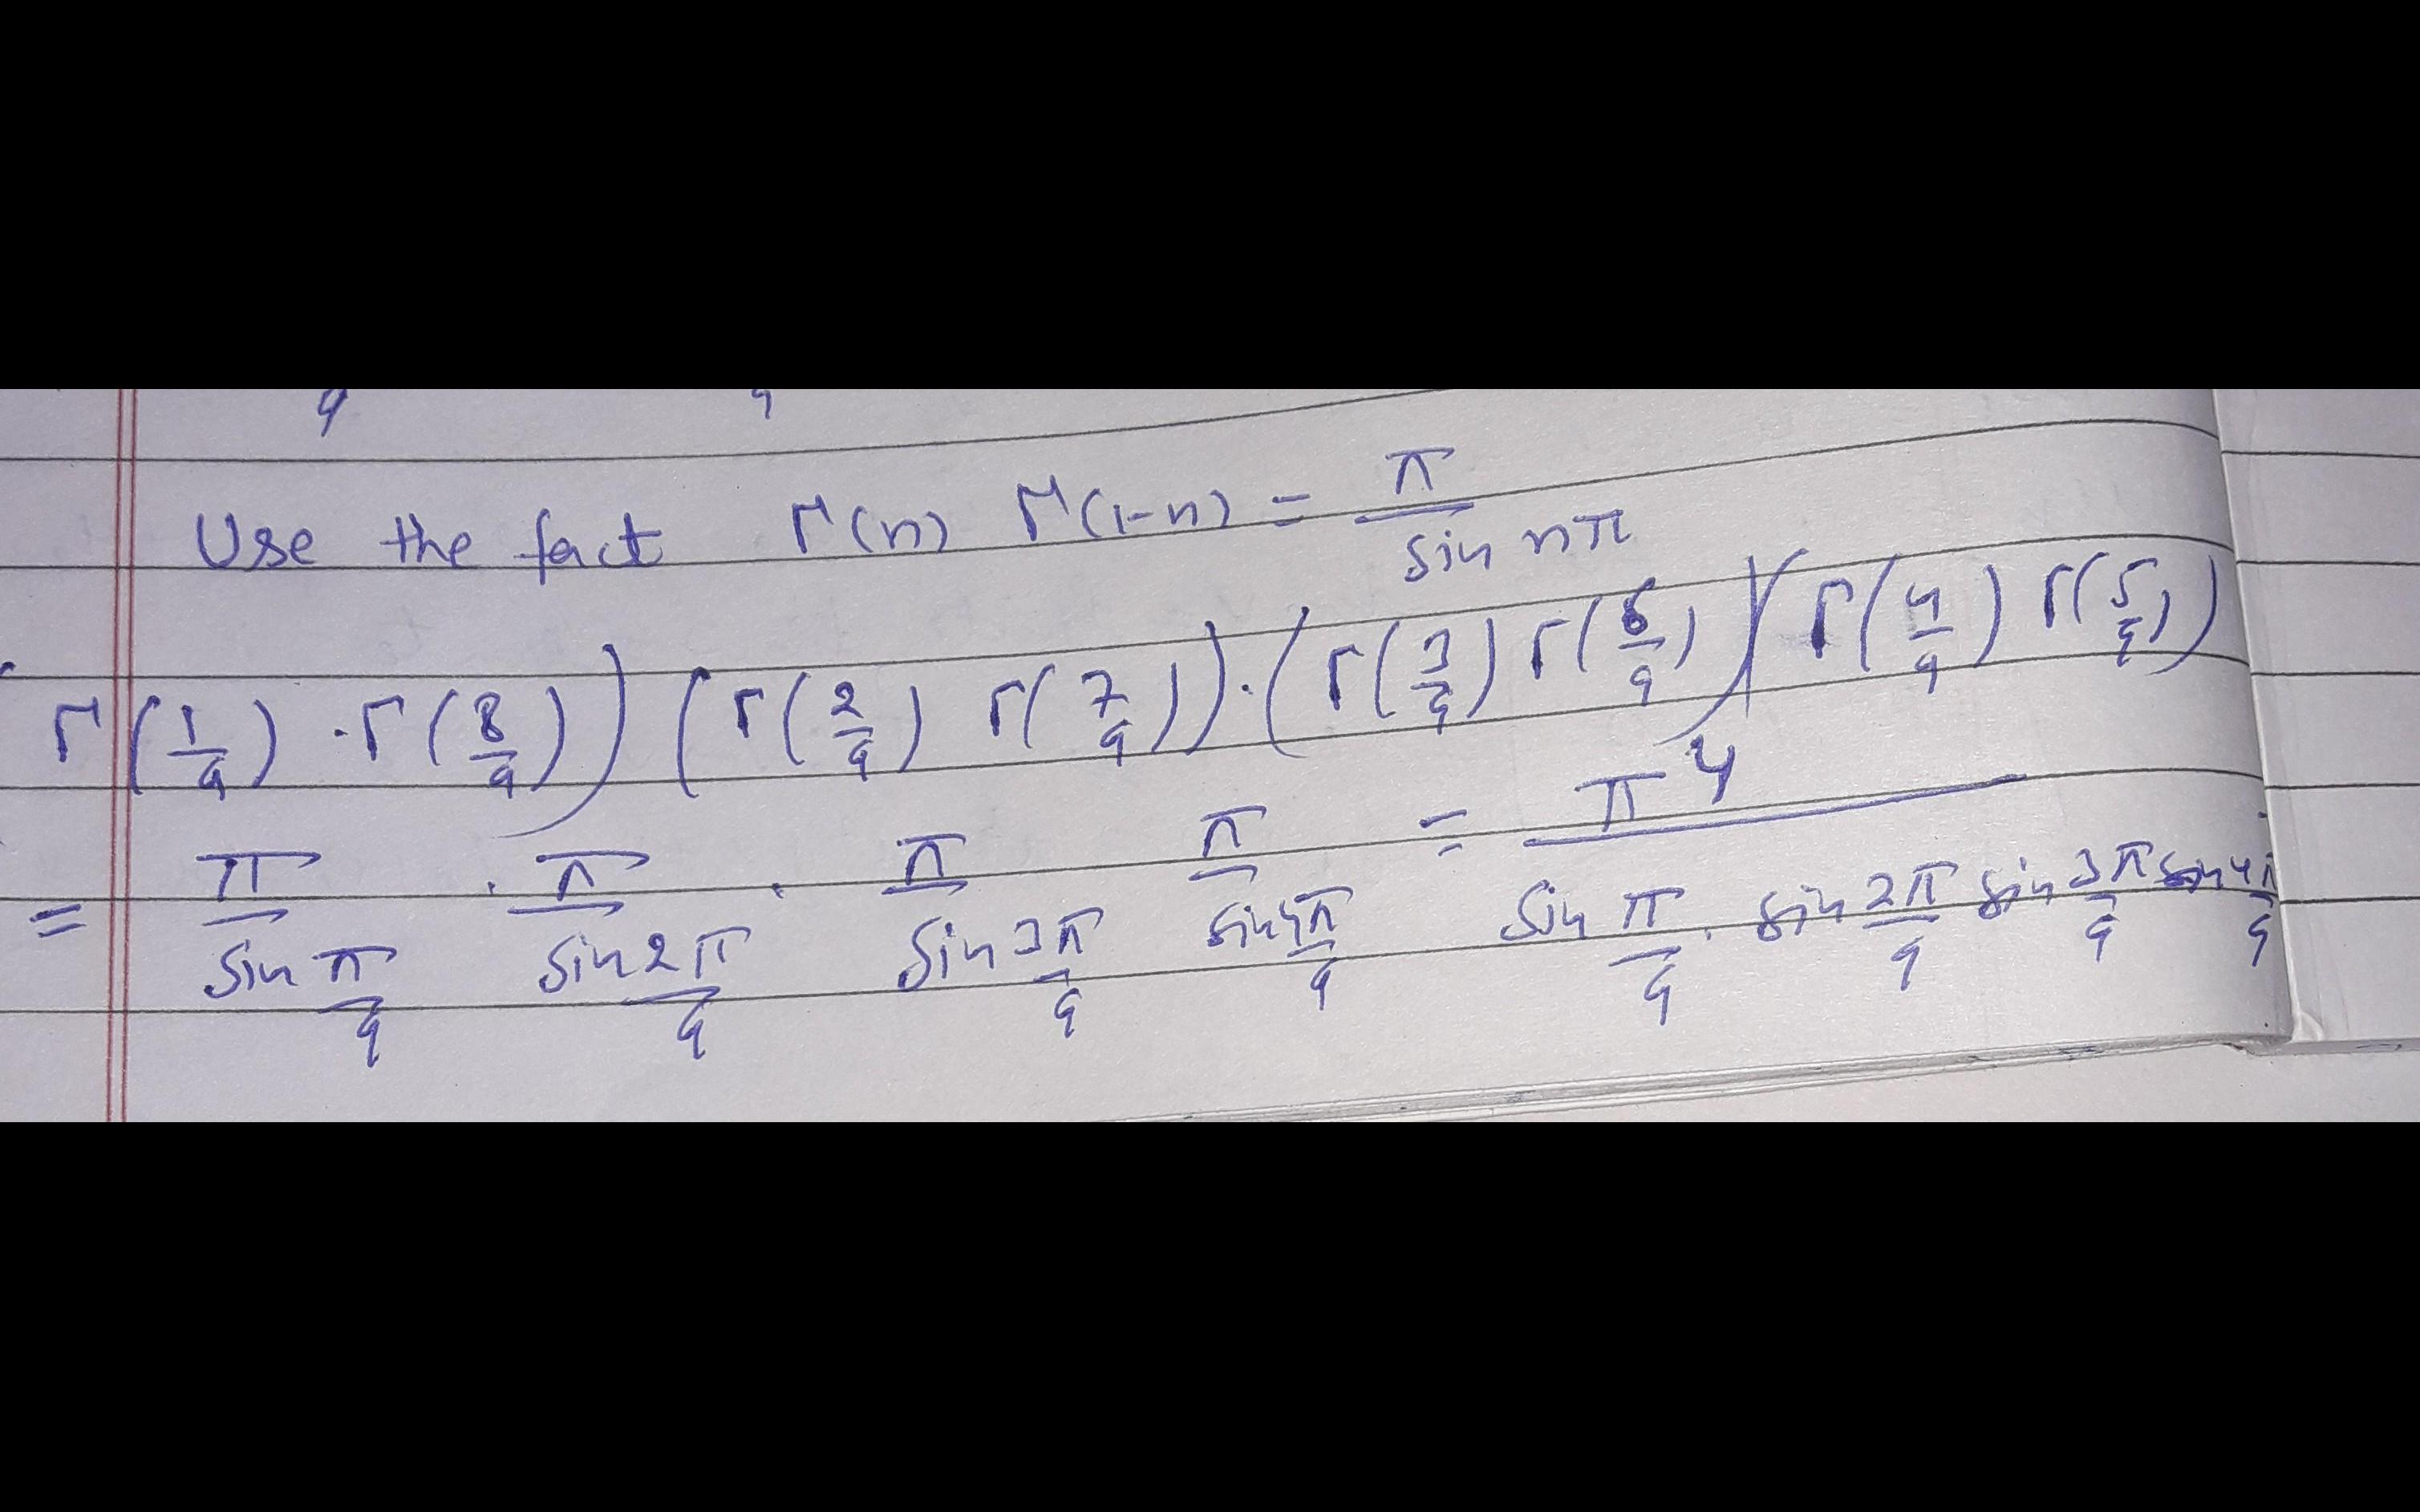 9 9
Use the fact Γ(n) Γ(1-n) = π / sin nπ
Γ(1/9) · Γ(8/9)) (Γ(2/9) Γ(7/9)) · (Γ(3/9) Γ(6/9)) (Γ(4/9) Γ(5/9))
= π / sin π/9 · π / sin 2π/9 · π / sin 3π/9 π / sin 4π/9 = π^4 / sin π/9 · sin 2π/9 sin 3π/9 sin 4π/9